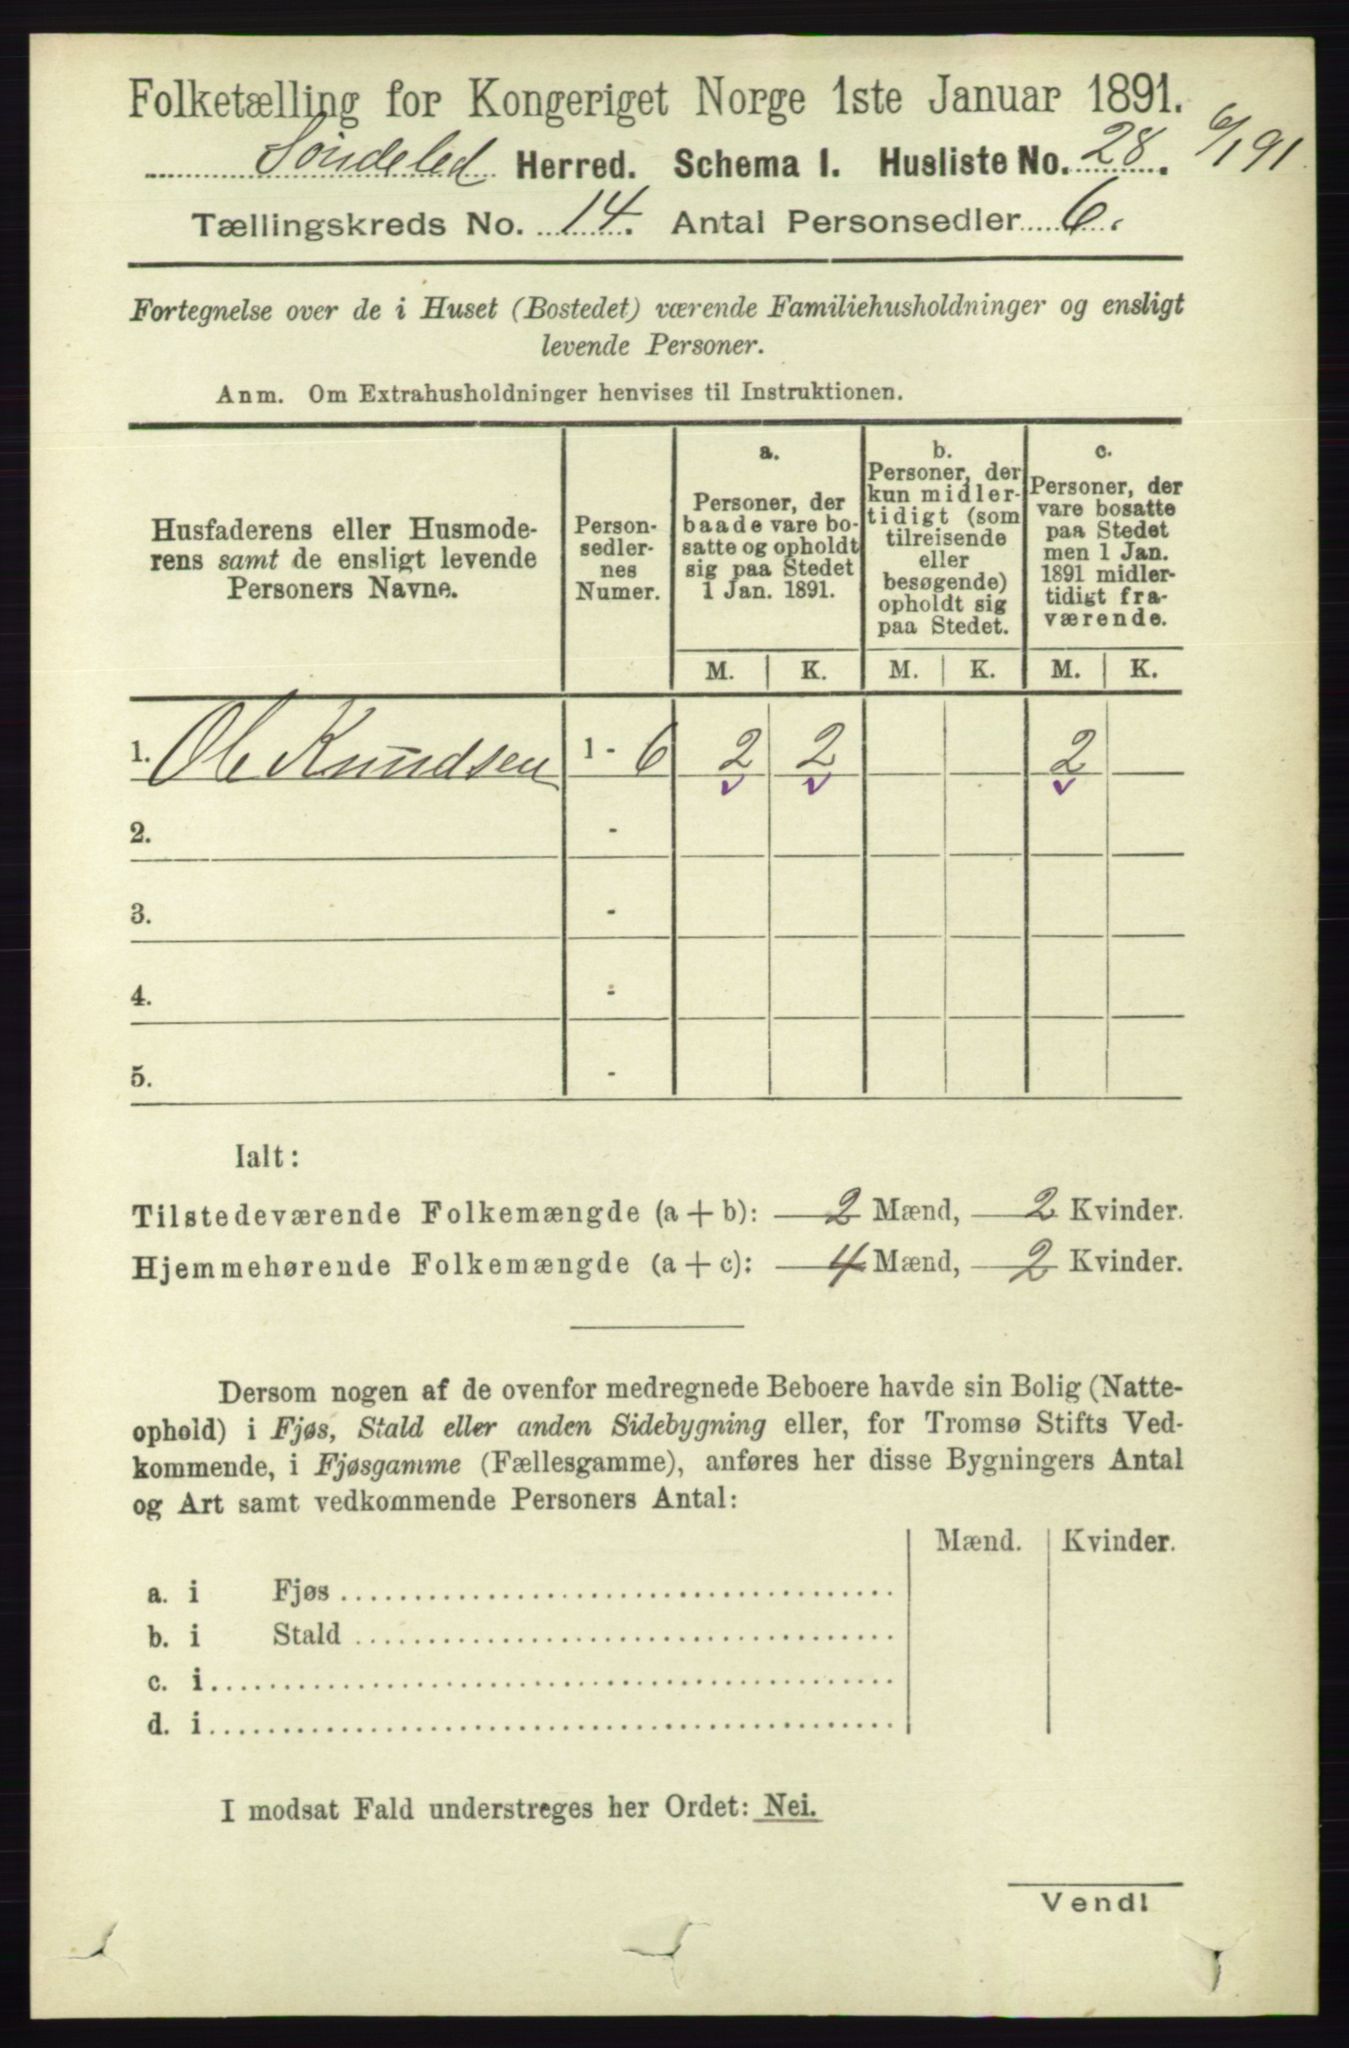 Folketælling for Kongeriget Norge 1ste Januar 1891.
Søndeled Herred. Schema I. Husliste No. 28. 6/1 91.
Tællingskreds No. 14. Antal Personsedler 6.
Fortegnelse over de i Huset (Bostedet) værende Familiehusholdninger og ensligt
levende Personer.
Anm. Om Extrahusholdninger henvises til Instruktionen.
Husfaderens eller Husmode-
rens samt de ensligt levende
Personers Navne.
Person-
sedler-
nes
Numer.
a.
Personer, der
baade vare bo-
satte og opholdt
sig paa Stedet
1 Jan. 1891.
b.
Personer, der
kun midler-
tidigt (som
tilreisende
eller
besøgende)
opholdt sig
paa Stedet.
c.
Personer, der
vare bosatte
paa Stedet
men 1 Jan.
1891 midler-
tidigt fra-
værende.
M. K. M. K. M. K.
1. Ole Knudsen 1 - 6 2 2 2
2. -
3. -
4. -
5. -
Ialt:
Tilstedeværende Folkemængde (a + b): 2 Mænd, 2 Kvinder.
Hjemmehørende Folkemængde (a + c): 4 Mænd, 2 Kvinder.
Dersom nogen af de ovenfor medregnede Beboere havde sin Bolig (Natte-
ophold) i Fjøs, Stald eller anden Sidebygning eller, for Tromsø Stifts Ved-
kommende, i Fjøsgamme (Fællesgamme), anføres her disse Bygningers Antal
og Art samt vedkommende Personers Antal:
Mænd. Kvinder.
a. i Fjøs
b. i Stald
c. i
d. i
I modsat Fald understreges her Ordet: Nei.
Vend!